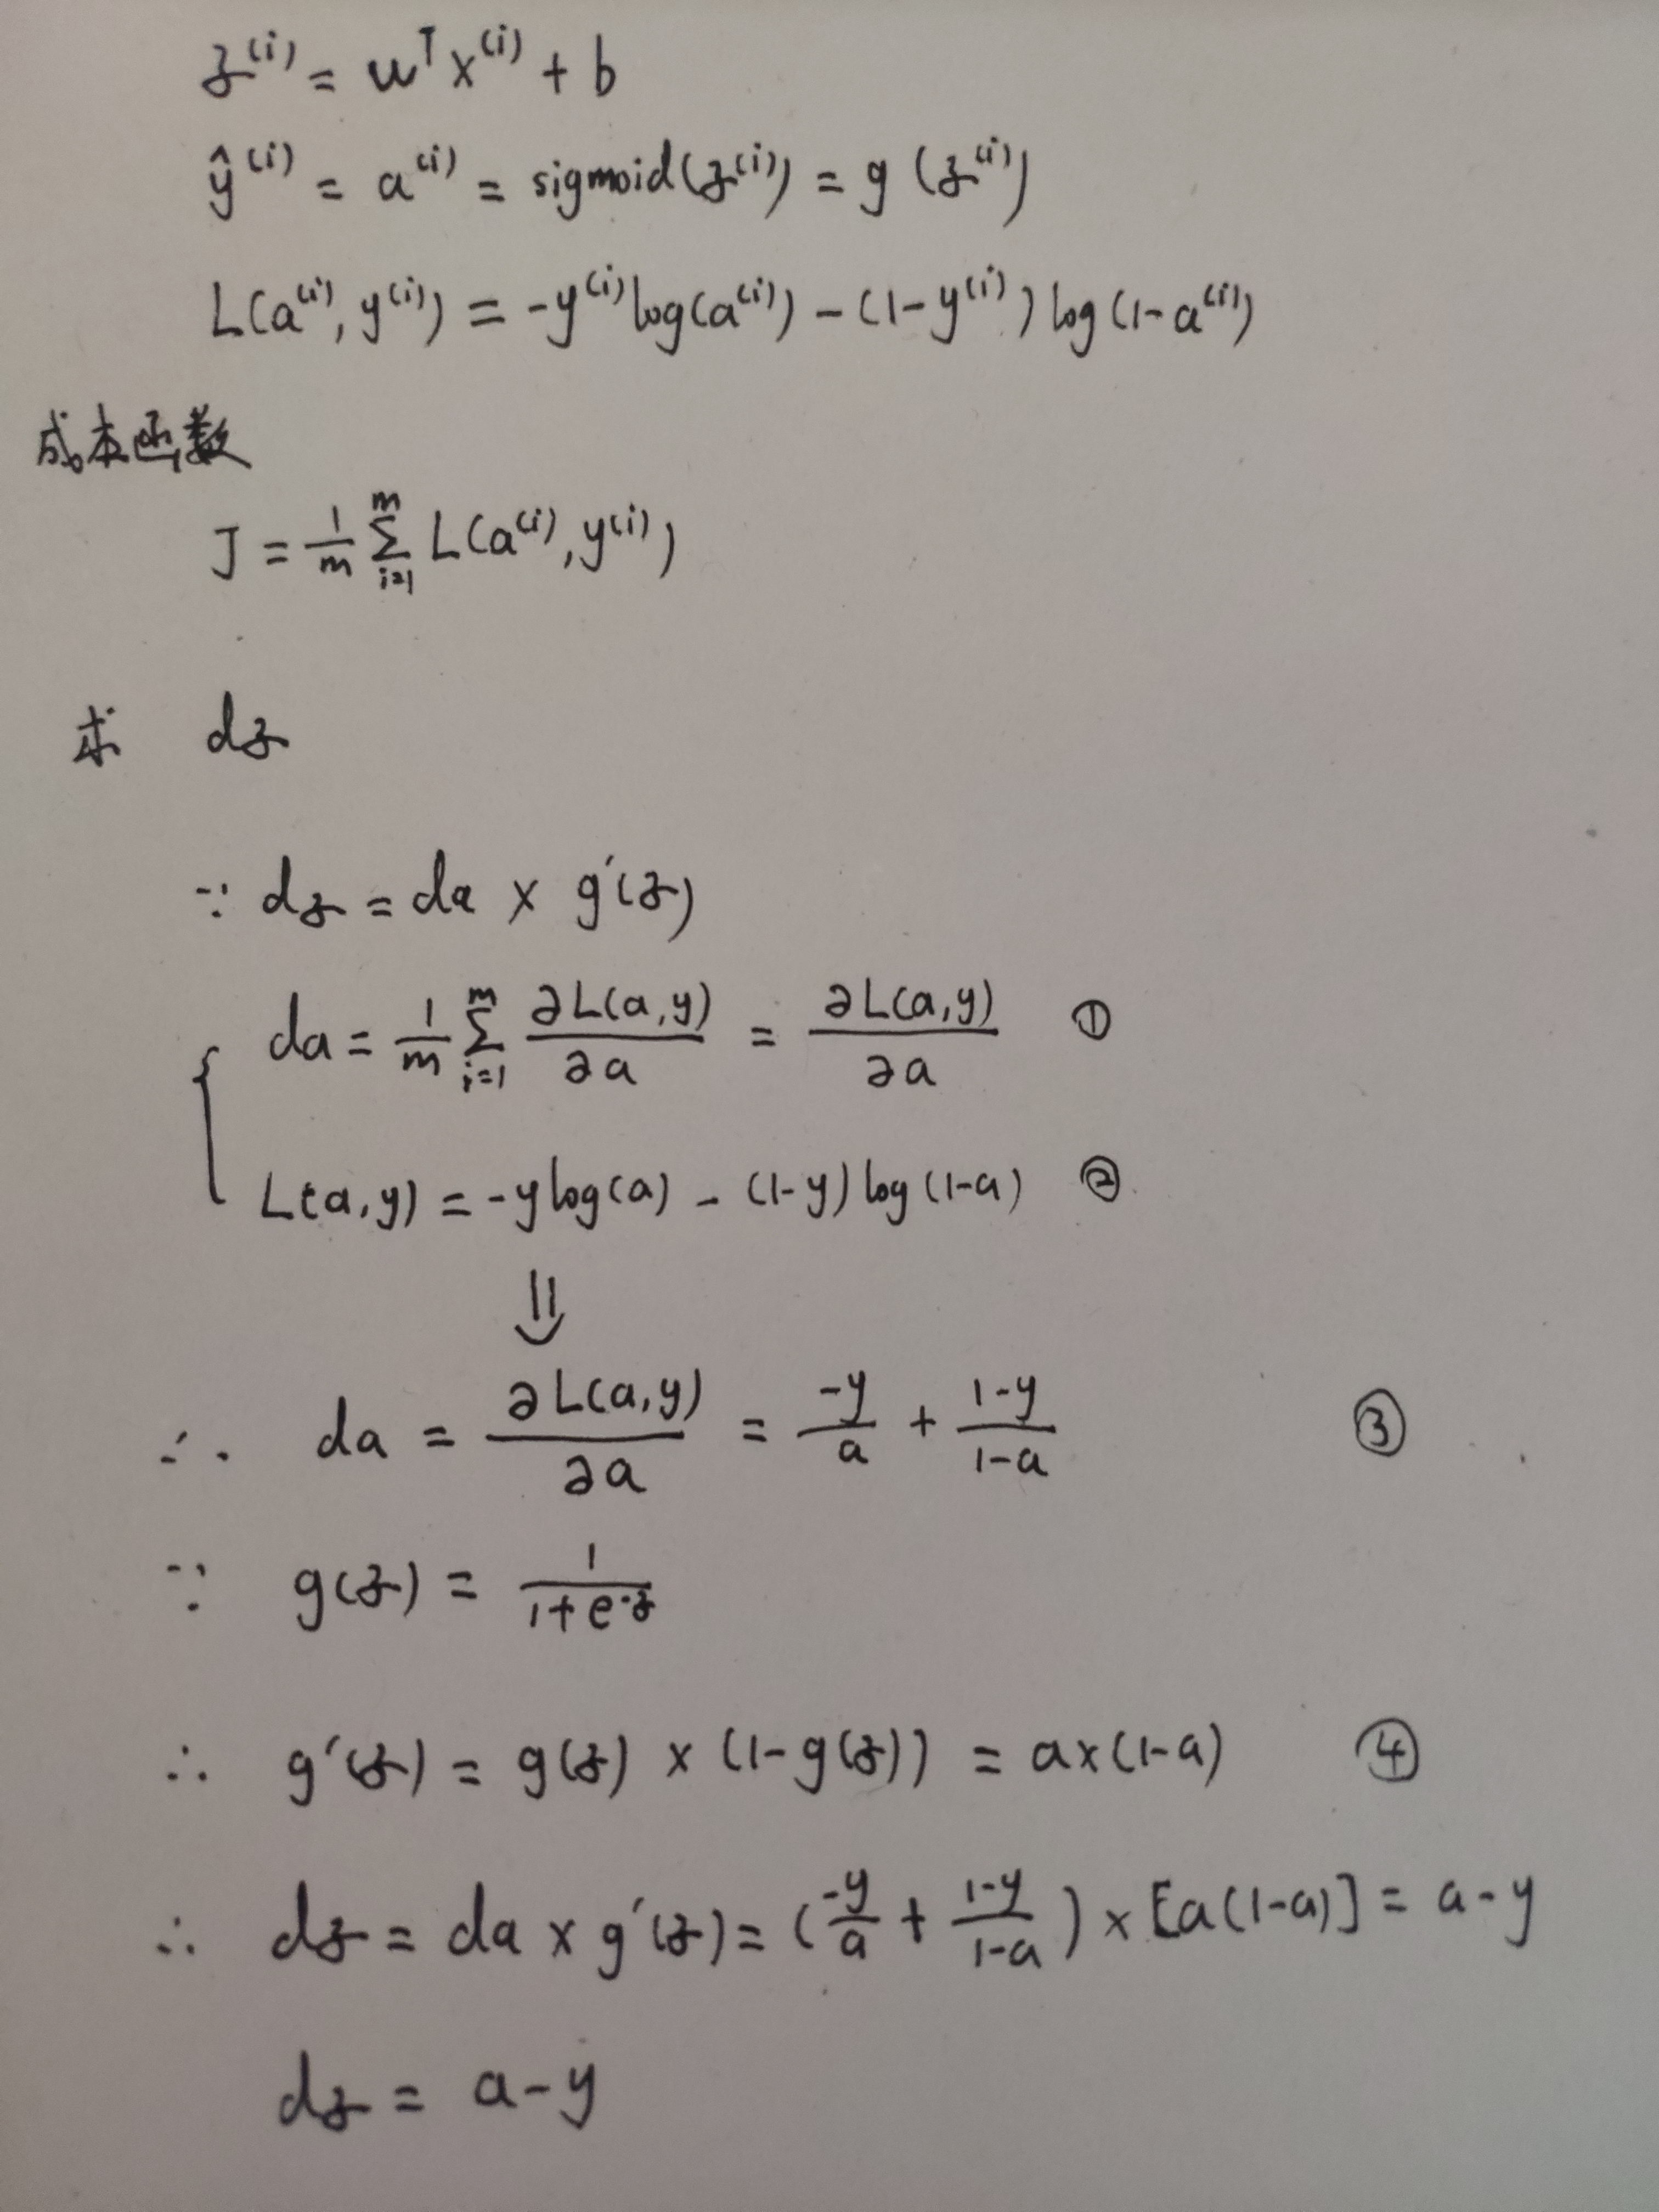 z⁽ⁱ⁾ = wᵀx⁽ⁱ⁾ + b
ŷ⁽ⁱ⁾ = a⁽ⁱ⁾ = sigmoid(z⁽ⁱ⁾) = g(z⁽ⁱ⁾)
L(a⁽ⁱ⁾, y⁽ⁱ⁾) = -y⁽ⁱ⁾log(a⁽ⁱ⁾) - (1-y⁽ⁱ⁾)log(1-a⁽ⁱ⁾)
成本函数
J = \frac{1}{m} \sum_{i=1}^{m} L(a⁽ⁱ⁾, y⁽ⁱ⁾)
求 dz
∵ dz = da × g′(z)
da = \frac{1}{m} \sum_{i=1}^{m} \frac{∂L(a,y)}{∂a} = \frac{∂L(a,y)}{∂a} ①
L(a,y) = -ylog(a) - (1-y)log(1-a) ②
⇓
∴ da = \frac{∂L(a,y)}{∂a} = \frac{-y}{a} + \frac{1-y}{1-a} ③
∵ g(z) = \frac{1}{1+e^{-z}}
∴ g′(z) = g(z) × (1-g(z)) = a×(1-a) ④
∴ dz = da × g′(z) = (\frac{-y}{a} + \frac{1-y}{1-a}) × [a(1-a)] = a-y
dz = a-y